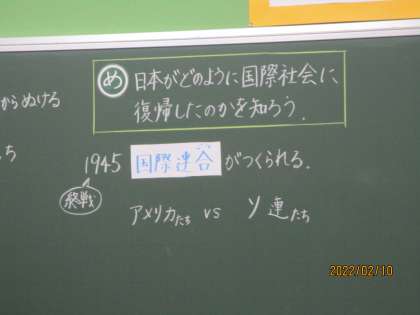 め 日本がどのように国際社会に
復帰したのかを知ろう.
からぬける
ち
1945 国際連合がつくられる.
終戦
アメリカたち vs ソ連たち
2022/02/10